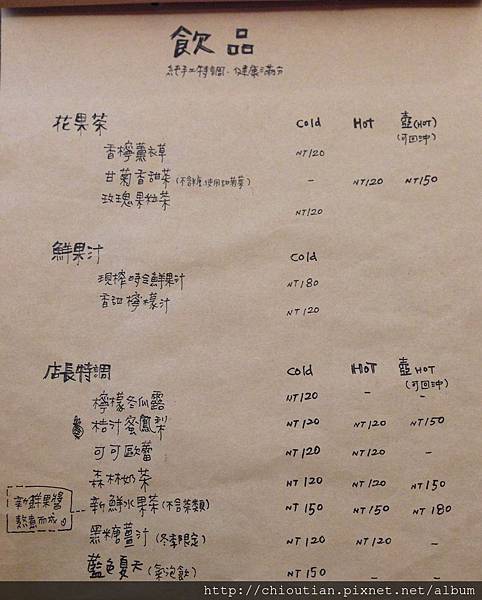 飲品
純手工特調、健康滿分
花果茶 Cold HOT 壺(HOT)
(可回沖)
香檸薰衣草 NT120
甘菊香甜茶(不含糖,使用甜菊葉) - NT120 NT150
玫瑰果柚茶 NT120
鮮果汁 Cold
現榨時令鮮果汁 NT180
香甜檸檬汁 NT120
店長特調 Cold HOT 壺HOT
(可回沖)
檸檬冬瓜露 NT120 - -
桔汁蜜鳳梨 NT120 NT120 NT150
可可歐蕾 NT120 NT120 -
森林奶茶 NT120 NT120 NT150
新鮮果醬
熬煮而成
新鮮水果茶(不含茶類) NT150 NT150 NT180
黑糖薑汁(冬季限定) NT120 NT120 -
藍色夏天(氣泡飲) NT150 - -
http://chioutian.pixnet.net/album